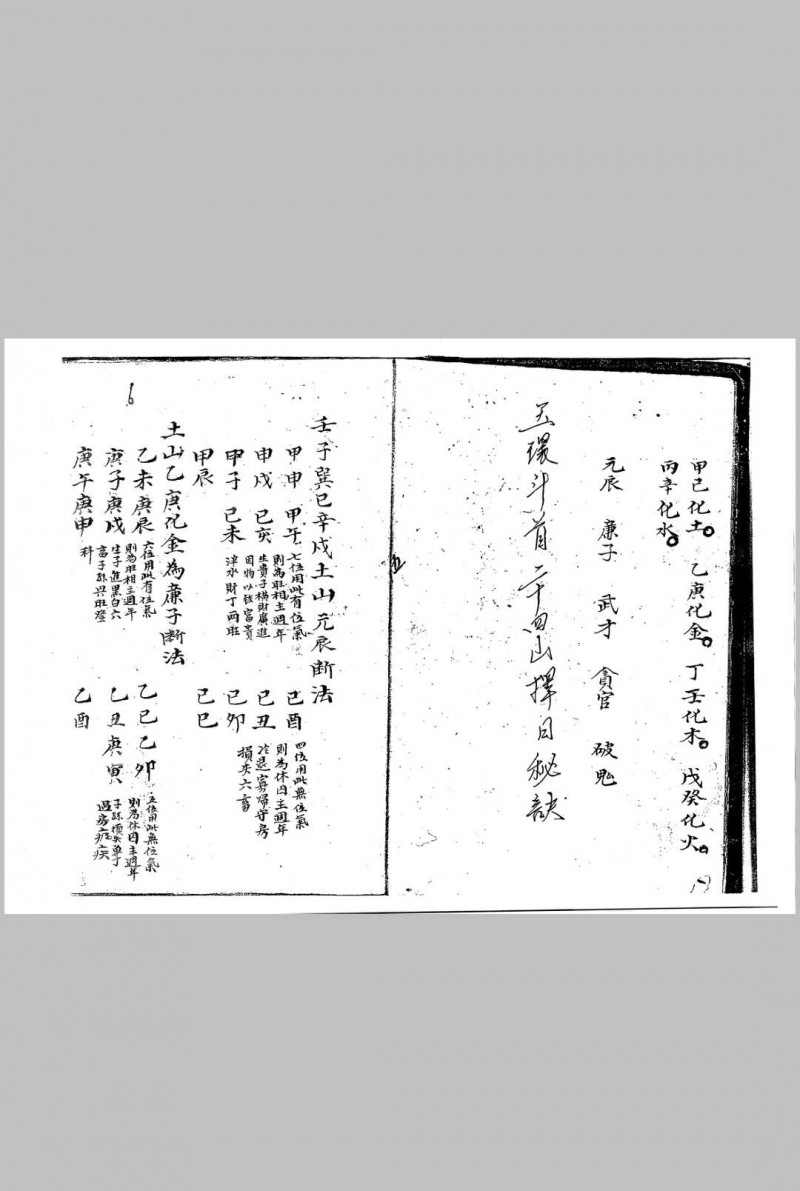 甲己化土。 乙庚化金。 丁壬化木。 戊癸化火。
丙辛化水。
元辰 廉子 武才 貪官 破鬼
斗首二十四山擇日秘訣
壬子巽巳辛戌土山元辰断法
甲申 甲午 七位用此有位氣
則為旺相主週年
生貴子橫財廣進
田物以致富貴
財丁兩旺
甲戌 己亥
甲子 己未
甲辰
己酉 四位用此無位氣
則為休囚主週年
冷退寡婦守房
損失六畜
己丑
己卯
己巳
土山乙庚化金為廉子断法
乙未庚辰 六位用此有位氣
則為旺相主週年
生子進黑白六
畜子孫興旺登
科
庚子庚戌
庚午庚申
乙巳乙卯 五位用此無位氣
則為休囚主週年
子孫損失單丁
過房疾
乙丑庚寅
乙酉
6